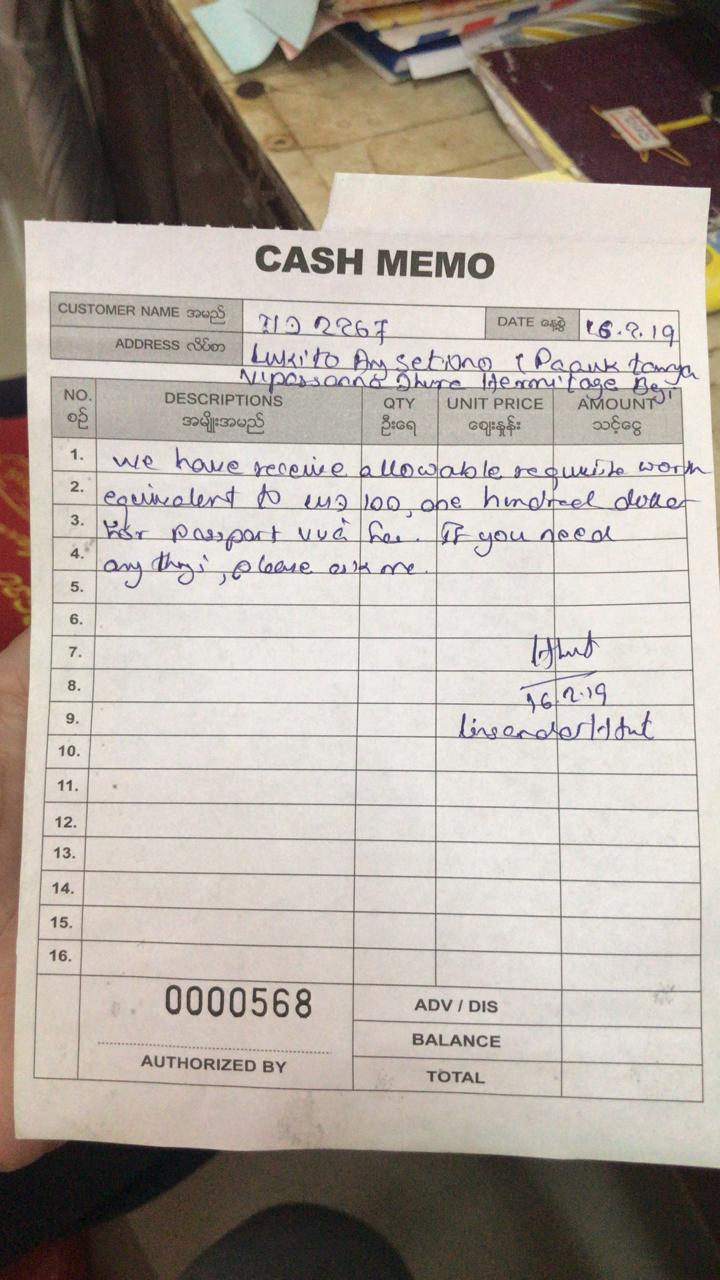 CASH MEMO
CUSTOMER NAME အမည် 2267 DATE နေ့စွဲ 16.2.19
ADDRESS လိပ်စာ Lukito Ary Setiono
Hermitage
NO. စဉ် DESCRIPTIONS အမျိုးအမည် QTY ဦးရေ UNIT PRICE ဈေးနှုန်း AMOUNT သင့်ငွေ
1. we have receive allowable requisite worth
2. equivalent to 100, one hundred doller
3. for passport fee. If you need
4. please ask me.
5.
6.
7.
8. 16.2.19
9.
10.
11.
12.
13.
14.
15.
16.
0000568
AUTHORIZED BY
ADV / DIS
BALANCE
TOTAL